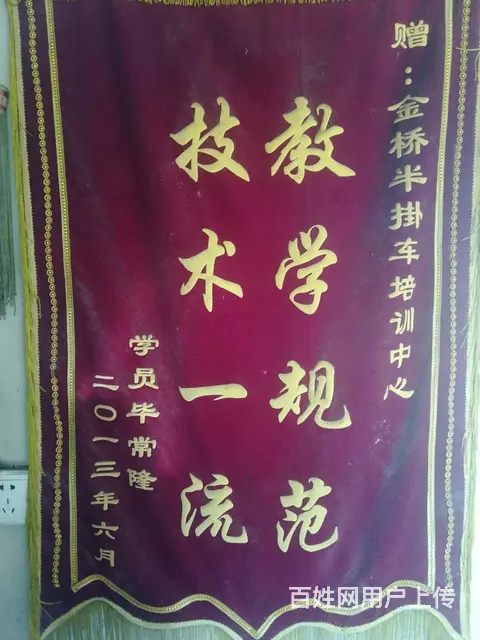 赠：金桥半掛车培训中心
教学规范
技术一流
学员毕常隆
二〇一三年六月
百姓网用户上传